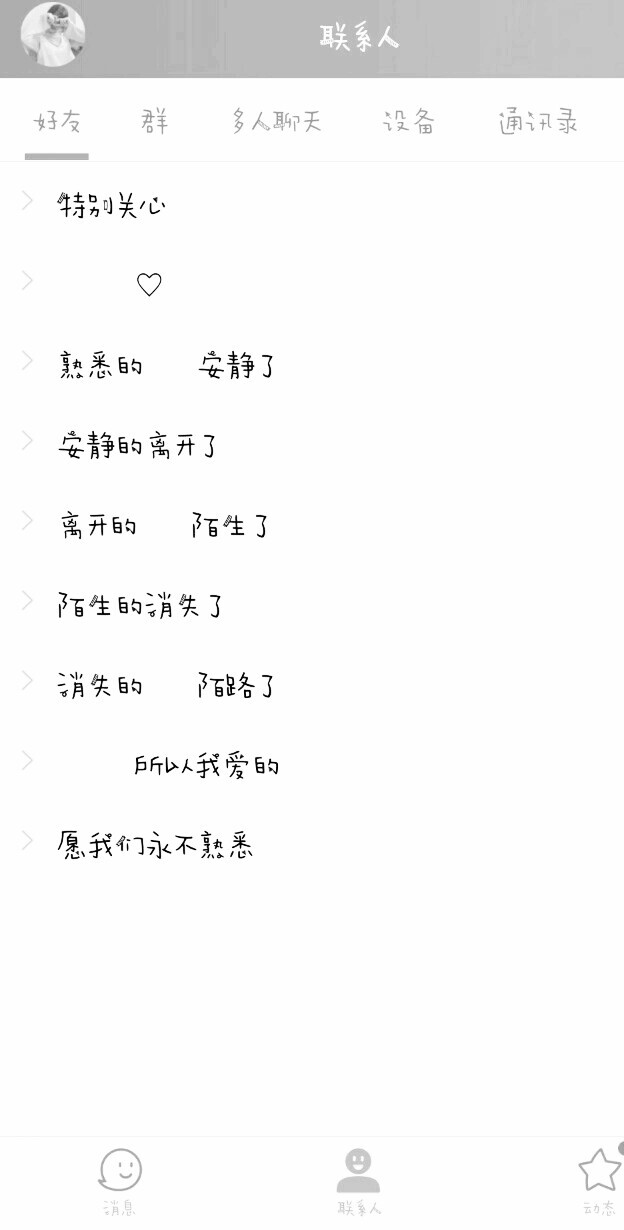 联系人
好友 群 多人聊天 设备 通讯录
特别关心
♡
熟悉的 安静了
安静的离开了
离开的 陌生了
陌生的消失了
消失的 陌路了
所以我爱的
愿我们永不熟悉
消息 联系人 动态